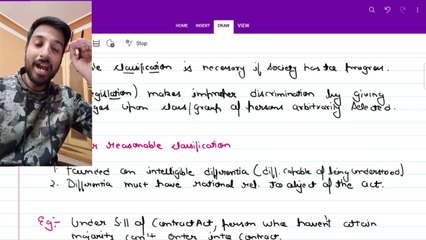 HOME INSERT DRAW VIEW
Stop
classification is necessary if society has to progress.
makes improper discrimination by giving
upon class/group of persons arbitrarily selected.
reasonable classification
1. Founded on intelligible differentia (diff. capable of being understood)
2. Differentia must have rational rel. to object of the act.
Eg:- Under S.11 of Contract Act, person who haven't attain
majority can't enter into contract.